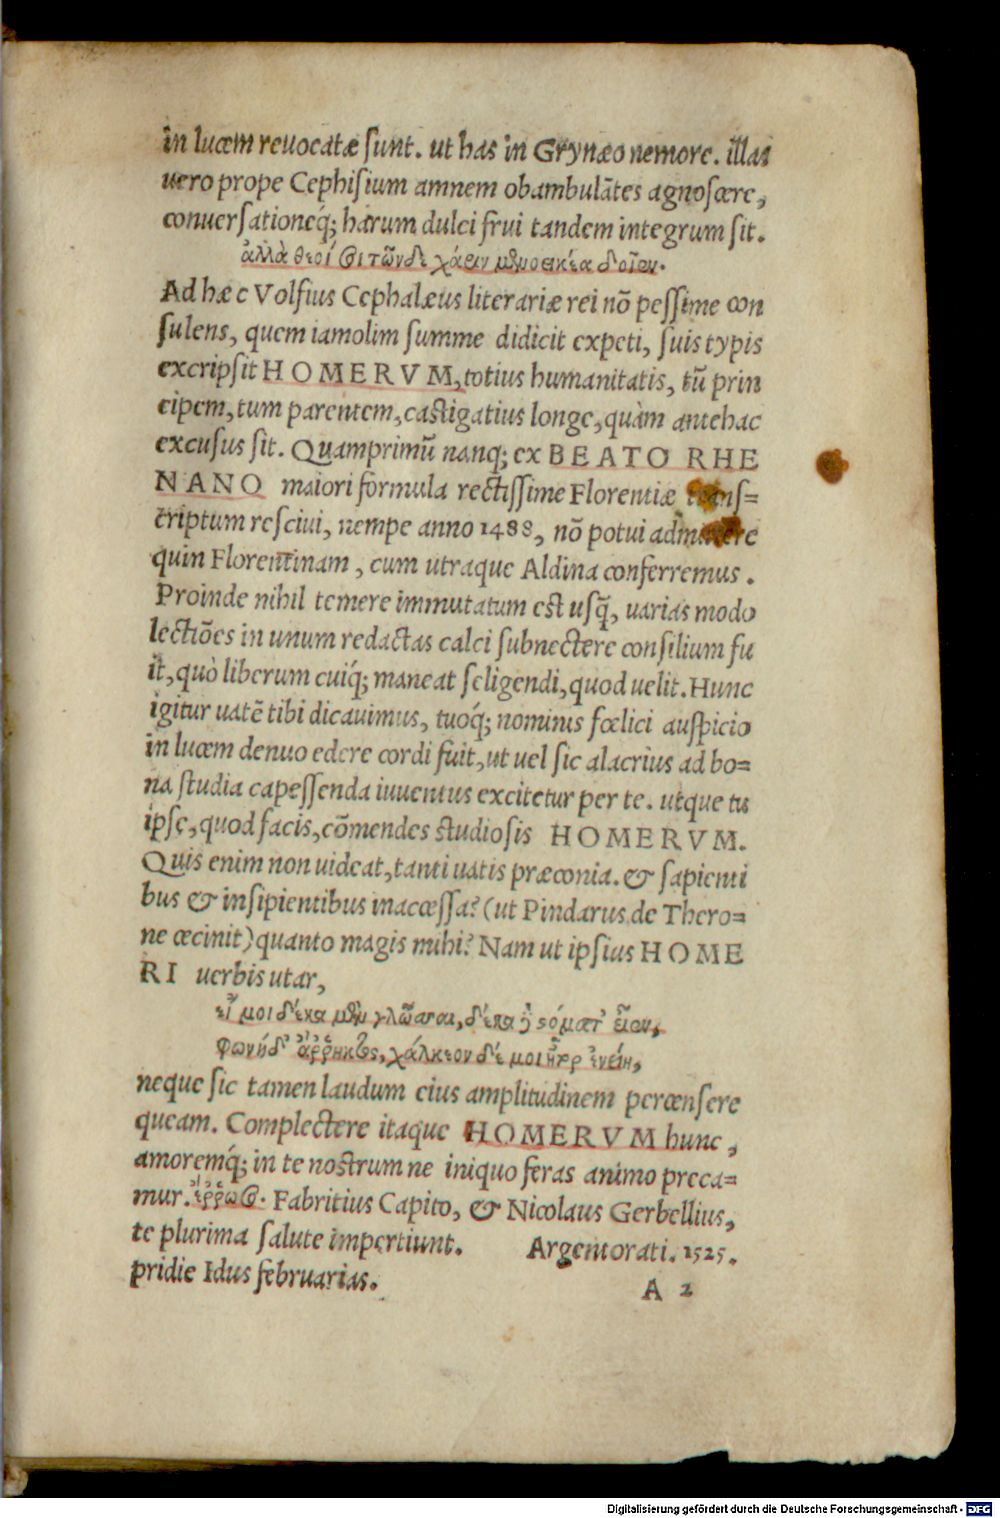 in lucem reuocatæ sunt. ut has in Grynæo nemore. illas
uero prope Cephisium amnem obambulãtes agnoscere,
conuersationeq́; harum dulci frui tandem integrum sit.
ἀλλὰ θεοί σοι τῶνδε χάριν μενοεικέα δοῖεν.
Ad hæc Volfius Cephalæus literariæ rei nõ pessime con
sulens, quem iamolim summe didicit expeti, suis typis
excripsit HOMERVM, totius humanitatis, tũ prin
cipem, tum parentem, castigatius longe, quàm antehac
excusus sit. Quamprimũ nanq; ex BEATO RHE
NANO maiori formula rectissime Florentiæ trans=
criptum resciui, nempe anno 1488, nõ potui admittere
quin Florentinam, cum utraque Aldina conferremus.
Proinde nihil temere immutatum est usq̃, uarias modo
lectiões in unum redactas calci subnectere consilium fu
it, quò liberum cuiq́; maneat seligendi, quod uelit. Hunc
igitur uatẽ tibi dicauimus, tuoq́; nominis fœlici auspicio
in lucem denuo edere cordi fuit, ut uel sic alacrius ad bo=
na studia capessenda iuuentus excitetur per te. utque tu
ipse, quod facis, cõmendes studiosis HOMERVM.
Quis enim non uideat, tanti uatis præconia. & sapienti
bus & insipientibus inaccessa? (ut Pindarus de Thero=
ne cecinit) quanto magis mihi? Nam ut ipsius HOME
RI uerbis utar,
εἴ μοι δέκα μὲν γλῶσσαι, δέκα δὲ στόματ' εἶεν,
φωνὴ δ' ἄῤῥηκτος, χάλκεον δέ μοι ἦτορ ἐνείη,
neque sic tamen laudum eius amplitudinem percensere
queam. Complectere itaque HOMERVM hunc,
amoremq́; in te nostrum ne iniquo feras animo preca=
mur. ἔῤῥωσο. Fabritius Capito, & Nicolaus Gerbellius,
te plurima salute impertiunt. Argentorati. 1525.
pridie Idus februarias.
A 2
Digitalisierung gefördert durch die Deutsche Forschungsgemeinschaft - DFG